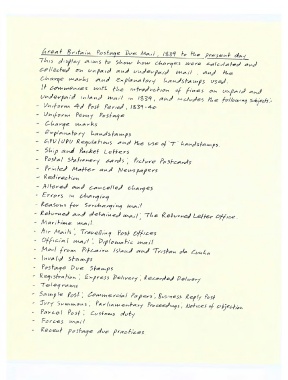 Great Britain Postage Due Mail, 1839 to the present day
This display aims to show how charges were calculated and
collected on unpaid and underpaid mail, and the
charge marks and explanatory handstamps used.
It commences with the introduction of fines on unpaid and
underpaid inland mail in 1839, and includes the following subjects:
- Uniform 4d Post Period, 1839-40
- Uniform Penny Postage
- Charge marks
- Explanatory handstamps
- GPU/UPU Regulations and the use of T handstamps.
- Ship and Packet Letters
- Postal Stationery cards; Picture Postcards
- Printed Matter and Newspapers
- Redirection
- Altered and cancelled charges
- Errors in charging
- Reasons for surcharging mail
- Returned and detained mail; The Returned Letter Office
- Maritime mail
- Air Mails; Travelling Post Offices
- Official mail; Diplomatic mail
- Mail from Pitcairn Island and Tristan da Cunha
- Invalid Stamps
- Postage Due Stamps
- Registration; Express Delivery; Recorded Delivery
- Telegrams
- Sample Post; Commercial Papers; Business Reply Post
- Jury Summons; Parliamentary Proceedings; Notices of Objection
- Parcel Post; Customs duty
- Forces mail
- Recent postage due practices